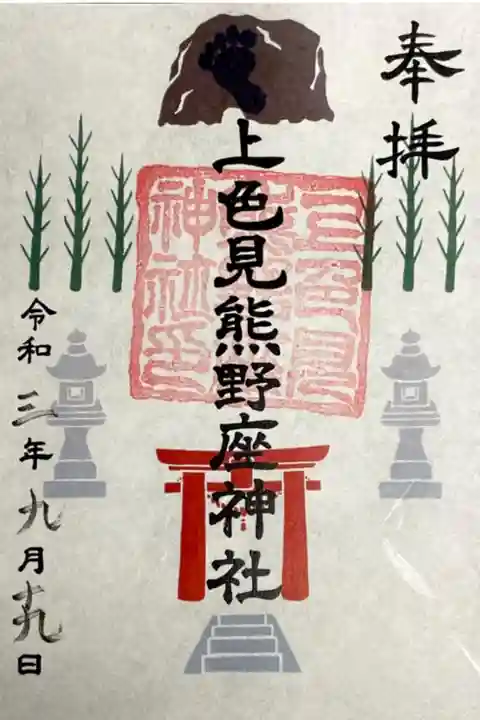 奉拝
上色見熊野座神社
上色見熊野座神社印
令和三年九月十九日